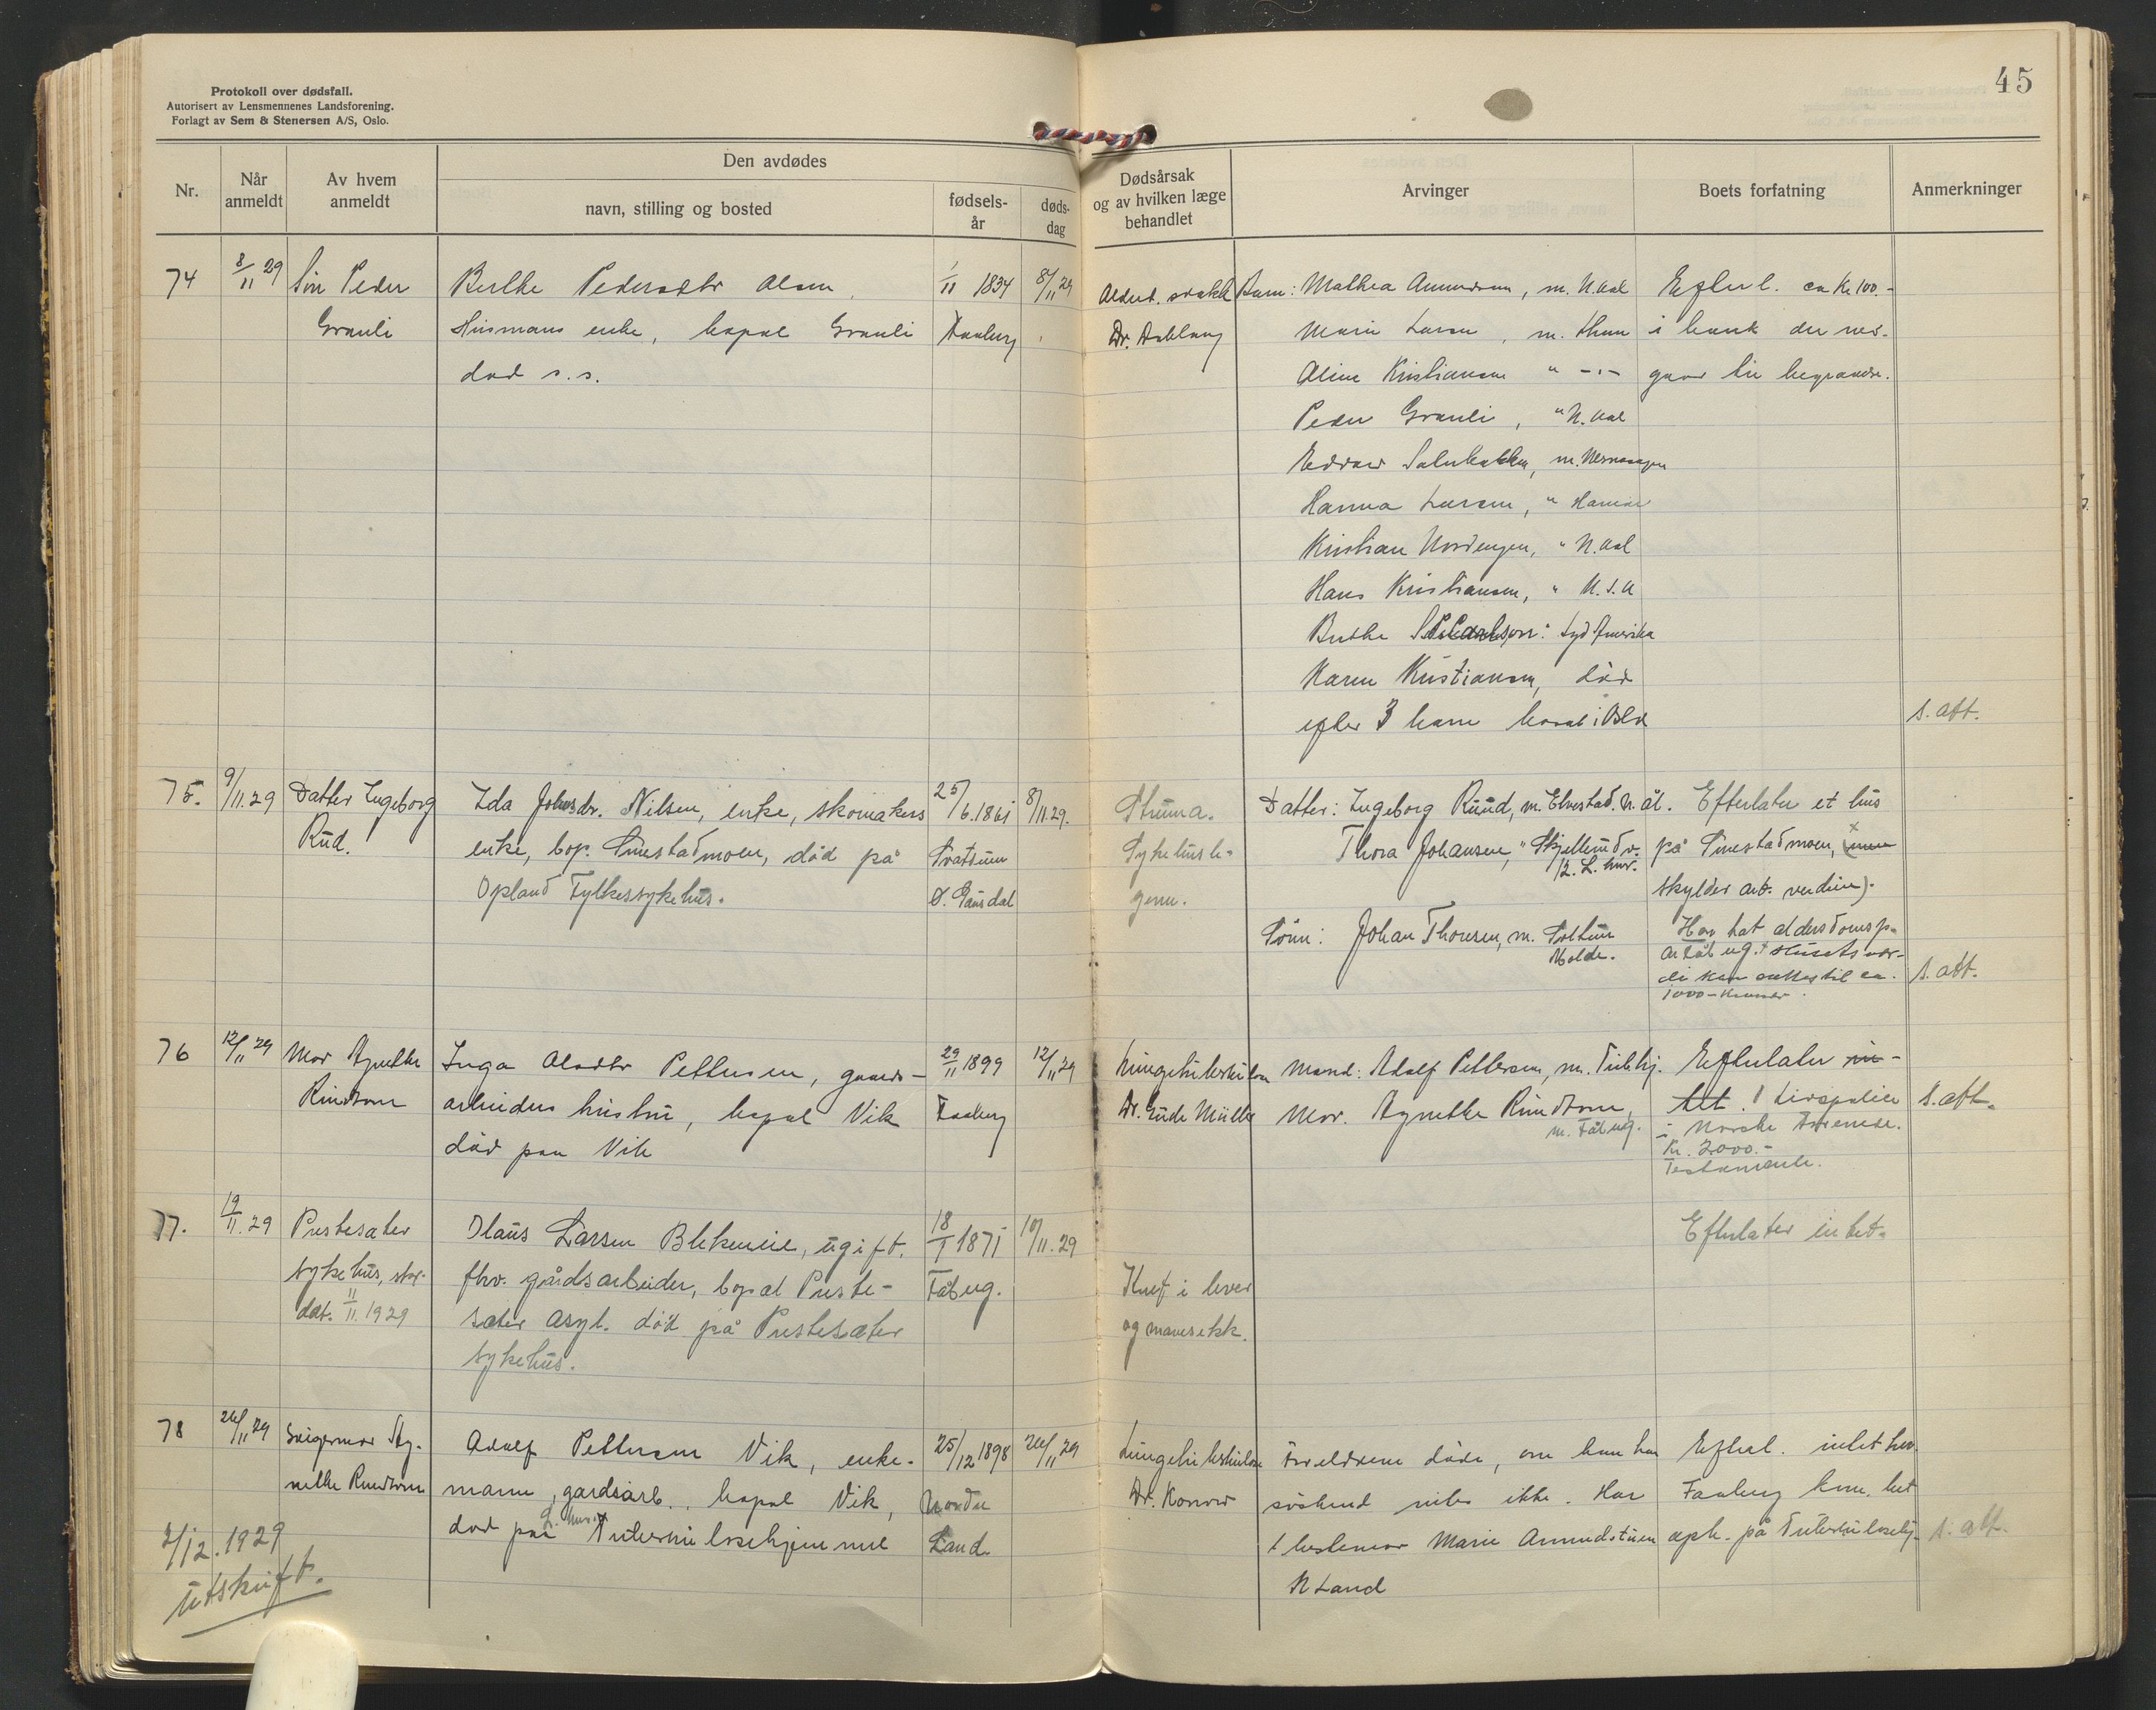 Protokoll over dødsfall.
Autorisert av Lensmennenes Landsforening.
Forlagt av Sem & Stenersen A/S, Oslo.
45
Nr.
Når anmeldt
Av hvem anmeldt
Den avdødes
navn, stilling og bosted
fødsels-år
døds-dag
Dødsårsak og av hvilken læge behandlet
Arvinger
Boets forfatning
Anmerkninger
74
8/11 29
Sön Peder
Granli
Berthe Pedersdtr Olsen
Husmans enke, bopæl Granli
död s.s.
1/11 1834
Faaberg
8/11 29
Alderd. svakh
Barn: Mathea Amundsen, m. N. Aal
Marie Larsen, m. Thun
Aline Kristiansen " -"-
Peder Granli, " N. Aal
Edvard
Hanna Larsen, " Hamar
Kristian Nordengen, " N. Aal
Hans Kristiansen, " U.S.A
Berthe : Syd Amerika
Karen Kristiansen, död
efter 3 barn bosat i Oslo
Efterl. ca kr 100.-
i bank der med-
gaar til begravelse.
s. att.
75.
9/11.29
Datter Ingeborg
Rud.
Ida Johnsdr. Nilsen, enke, skomakers
enke, bop. Smestadmoen, död på
Opland Fylkessykehus.
25/6.1861
Svatsum
Ö. Gausdal
8/11.29.
Struma.
Sykehusle-
gene.
Datter: Ingeborg Ruud, m. Elvestad. N. ål.
Thora Johansen, "
Sönn: Johan Thoresen, m.
Molde.
Efterlater et hus
på Smestadmoen, (men
skylder att. verdien).
Har hat alderdomsp.
av Fåberg. + Husets vær-
di kan ansettes til ca.
1000- kroner.
s. att.
76
12/11 29
Mor Agnethe
Rindson
Inga Olsdtr Pettersen, gaards-
arbeiders hustru, bopæl Vik
död paa Vik
29/11 1899
Faaberg
12/11 29
Lungetuberkulose
Dr. Gude Müller
Mand: Adolf Pettersen, m. Tub.hj.
Mor. Agnethe Rindson,
m. Fåberg.
Efterlater in-
tet. 1 Livspolice
i Norske Forenede.
Kr. 2000.-
Testamente.
s. att.
77.
19/11.29
Prestesæter
sykehus, skr.
dat. 11/11.1929
Olaus Larsen Blekeneie, ugift.
fhv. gårdsarbeider, bopæl Preste-
sæter asyl. död på Prestesæter
sykehus.
18/1 1871
Fåberg.
10/11.29
Kreft i lever
og mavesekk.
Efterlater intet.
78
26/11 29
Svigermor Ag-
nethe Rindson
Adolf Pettersen Vik, enke-
mann, gardsarb., bopæl Vik,
död på L. hmr. Tuberkulosehjemmet
25/12 1898
Nordre
Land.
26/11 29
Lungetuberkulose
Dr. Konow
Foreldrene döde, om han har
söskend vites ikke. Har
1 bestemor Marie Amundstuen
N Land
Efterl. intet hvor.
Faaberg kom. bet
oph. på Tuberkulosehj.
s. att.
2/12.1929
Utskrift.